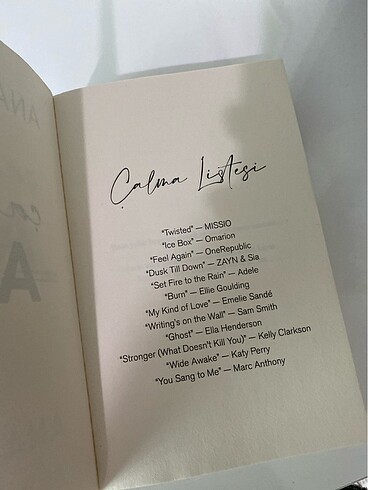 Çalma Listesi
"Twisted" — MISSIO
"Ice Box" — Omarion
"Feel Again" — OneRepublic
"Dusk Till Down" — ZAYN & Sia
"Set Fire to the Rain" — Adele
"Burn" — Ellie Goulding
"My Kind of Love" — Emelie Sandé
"Writing's on the Wall" — Sam Smith
"Ghost" — Ella Henderson
"Stronger (What Doesn't Kill You)" — Kelly Clarkson
"Wide Awake" — Katy Perry
"You Sang to Me" — Marc Anthony